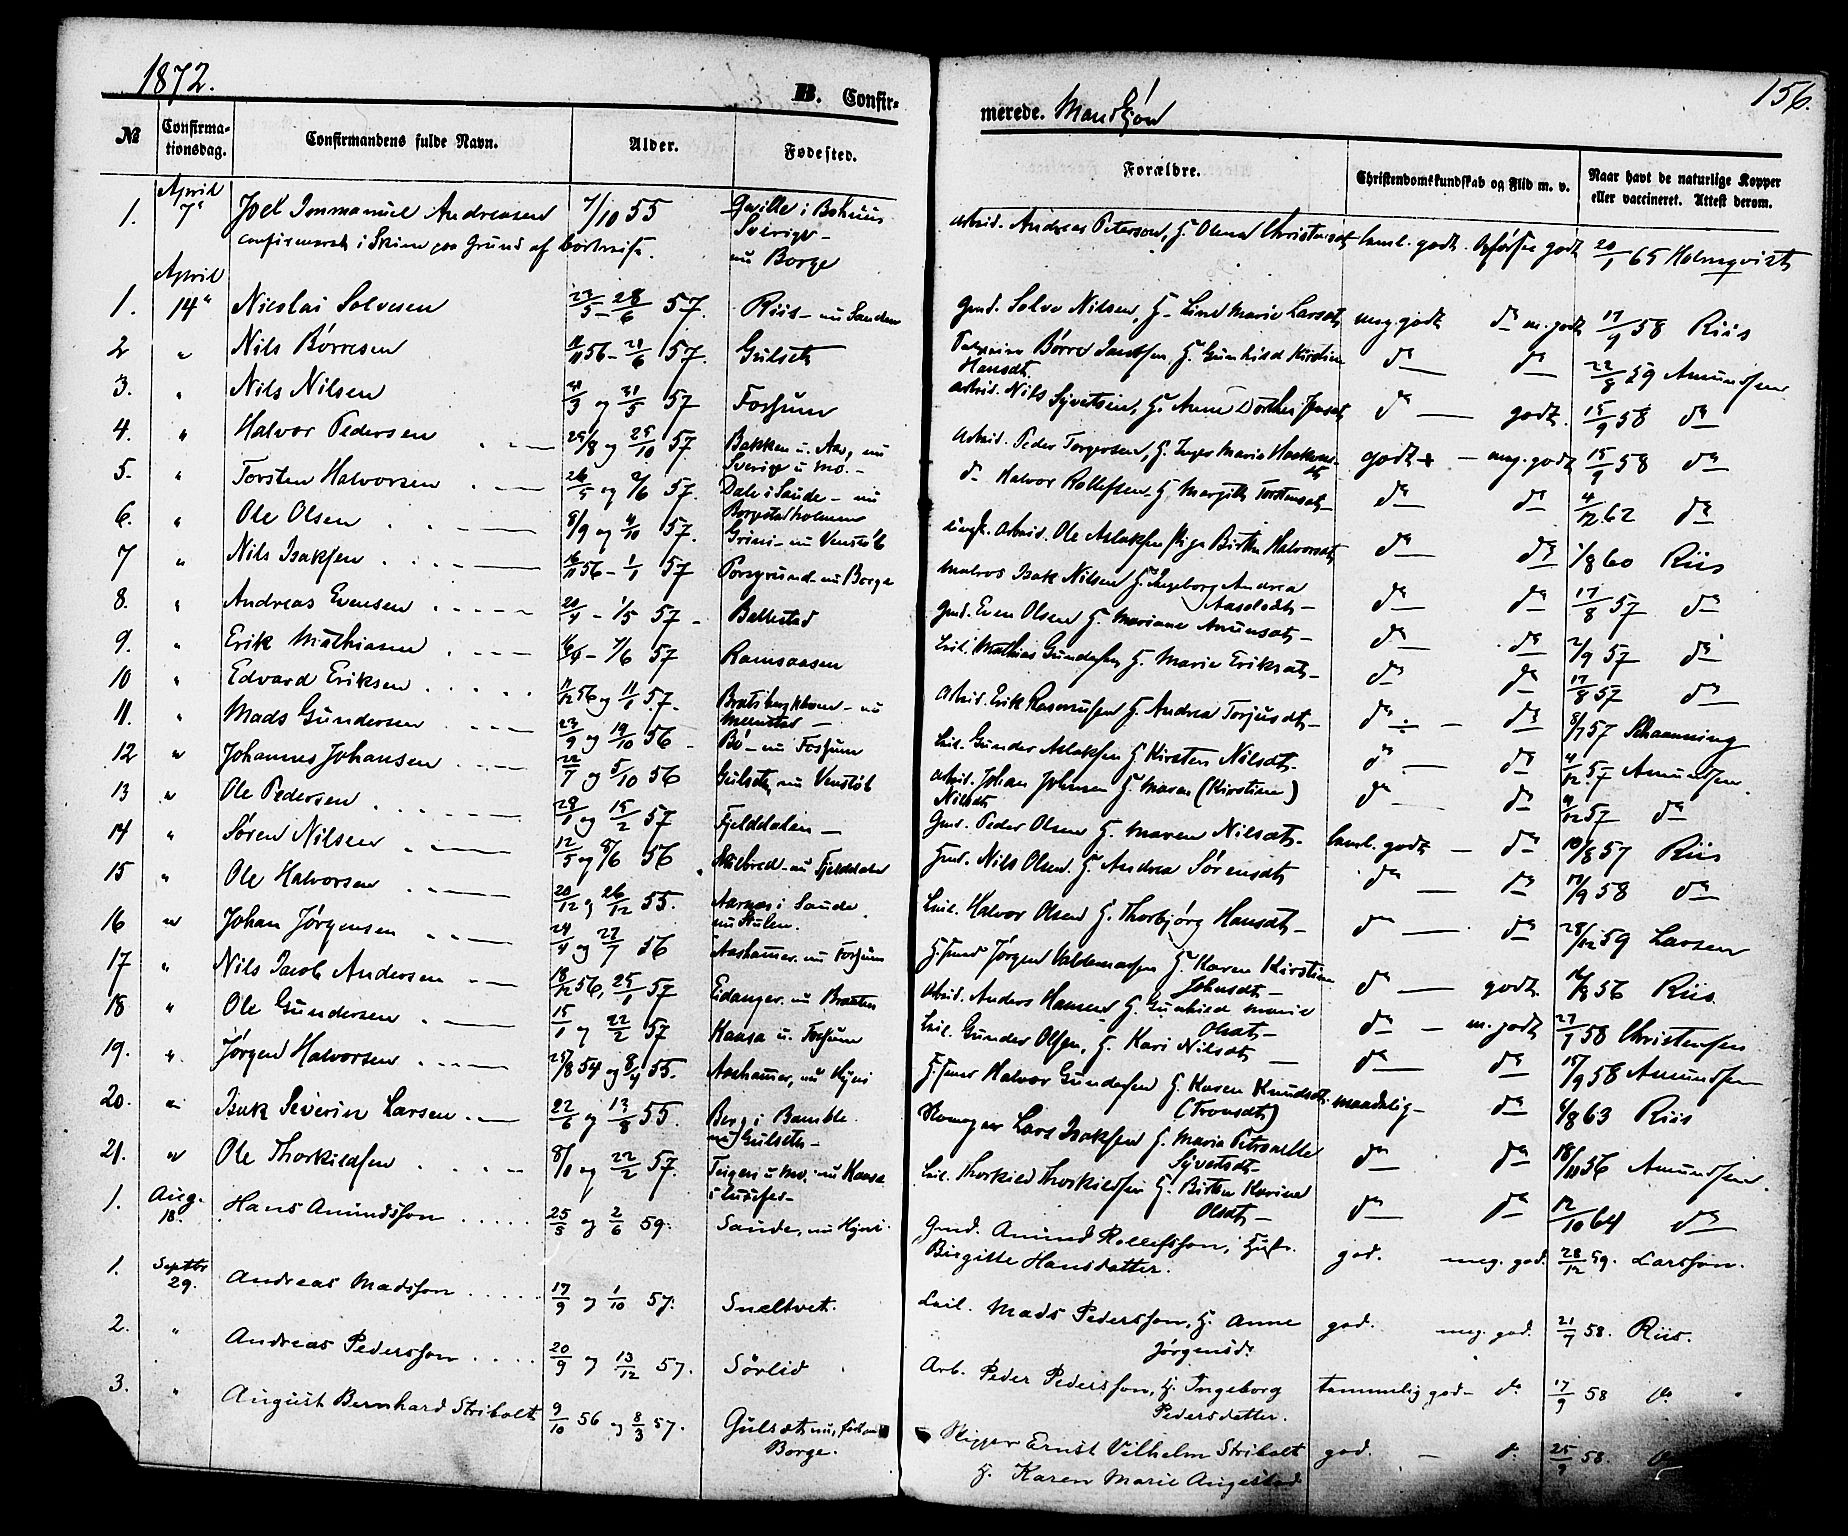 1872.
B. Confirmerede. Mandkjøn
156.
№ Confirmationsdag. Confirmandens fulde Navn. Alder. Fødested. Forældre. Christendomskundskab og Flid m. v. Naar havt de naturlige Kopper eller vaccineret. Attest derom.
1. April 7" Joel Immanuel Andreasen 7/10 55 i Bohuus Sverige – nu Borge arbeid. Andreas Peterson, H. Olena Christensdt. taml. godt. Opførsel godt 20/1 65 Holmqvist
confirmeret i Skien paa Grund af bortreise.
April
1. 14" Nicolai Solvesen 23/5 – 28/6 57. Riis – nu Sanden gmd. Solve Nilsen, H. Line Marie Larsdt. meg. godt do m. godt 17/9 58 Riis
2 " Nils Børresen 11/11 56 – 21/6 57. Gulset Børre Jacobsen, H. Gunhild Kirstine Hansdt. do do 22/8 59 Amundsen
3. " Nils Nilsen og 31/5 57 Fossum arbeid. Nils Syvertsen, H. Anne Dorthea do godt. 15/9 58 do
4. " Halvor Pedersen 25/8 og 25/10 57 Bakken u. Aas, nu Sverige u. Mo. – Arbeid. Peder Torgersen, H. Inger Marie godt – meg. godt 15/9 58 do
5. " Torsten Halvorsen 26/5 og 7/6 57. Dale i Saude – nu Borgestadholmen do Halvor Rollefsen H. Margith Torstensdt. – do do 4/12 62 do
6. " Ole Olsen 8/9 og 4/10 57. Grini – nu Venstøb ungk. arbeid. Ole Aslaksen Pige Birthe Halvorsdt. do do 1/8 60 Riis
7 " Nils Isaksen 16/11 56 – 1/1 57 Porsgrund nu Borge matros Isak Nilsen H. Ingeborg Andrea do do 17/8 57 do
8. " Andreas Evensen 20/4 – 1/5 57 – Ballestad gmd. Even Olsen H. Mariane Amundsdt. – do do 2/9 57 do
9. " Erik Mathiasen – 7/6 57 Ramsaasen Leil. Mathias Gundersen H. Marie Eriksdt. – do do 17/8 57 do
10 " Edvard Eriksen 11/12 56 og 11/1 57. Bratsbergkleven – nu Menstad – arbeid. Erik Rasmusen H. Andrea Torjusdt. – do do 8/7 57 Schaanning
11. " Mads Gundersen 23/9 og 19/10 56 – Bø – nu Fossum Leil. Gunder Aslaksen H. Kirsten Nilsdt. do do 4/12 57 Amundsen.
12 " Johannes Johansen 22/7 og 5/10 56 Gulset, nu Venstøb arbeid. Johan Johnsen H. Maren (Kirstine) Nilsdt. do do 4/12 57 do
13 " Ole Pedersen 28/1 og 15/2 57 Fjelddalen – Gmd. Peder Olsen H. Maren Nilsdt. – taml. godt – do 10/8 57 Riis
14 " Søren Nilsen 12/5 og 8/6 56 – nu Fjelddalen Gmd. Nils Olsen H. Andrea Sørensdt. do do 17/9 58 do
15 " Ole Halvorsen 20/12 og 26/12 55. Aarnæs i Saude. nu Stulen. Leil. Halvor Olsen H. Thorbjørg Hansdt. – do do 28/12 59 Larsen
16 " Johan Jørgensen 24/4 og 27/7 56 Aashamer. nu Fossum Jørgen Valdemarsen H. Karen Kirstine Johnsdt. – do godt. 16/8 56 Riis.
17 " Nils Jacob Andersen 18/12 56, 25/1 57 Eidanger. nu Braaten Arbeid. Anders Hansen H. Gunhild Marie Olsdt. – do – m. godt 27/7 58 Christensen
18 " Ole Gundersen 15/1 og 22/2 57 Kaasa u. Fossum Leil. Gunder Olsen, H. Kari Nilsdt. – do do 15/9 58 Amundsen
19. " Jørgen Halvorsen 25/8 54 og 8/4 55. Aashamer, nu Hyni Halvor Gundersen H. Karen Knudsdt. (Tronsdt.) maadelig – do 6/8 63 Riis
20. " Isak Severin Larsen 22/6 og 13/8 55. Berg i Bamble. nu Gulset – Lars Isaksen H. Maria Petronelle Syvertsdt. – do do 18/11 56 Amundsen.
21. " Ole Thorkildsen 8/1 og 22/2 57. u Mo. nu Kaasa Leil. Thorkild Thorkildsen H. Birthe Karine Olsdt. – do do 12/10 64 do
1. Aug. 18. Hans Amundsson 25/5 og 2/6 59. Sande, nu Hyni. Gmd. Amund Rollefsson, Hust. Birgitte Hansdatter. god. meg. god. 28/12 59. Larsson.
1. Septbr 29. Andreas Madsson 17/9 og 1/10 57. Snaltvet. Leil. Mads Pedersson, H. Anne Jørgensd. god. meg. god. 21/7 58. Riis.
2. " Andreas Pedersson 20/9 og 13/12 57. Sørlid Arb. Peder Pedersson, H. Ingeborg Pedersdatter. temmelig god – do 17/9 58 do
3. " August Bernhard Stribolt 9/10 56 og 8/3 57. Gulset nu Borge. Skipper Ernst Vilhelm Stribolt H. Karen Marie Angestad god. – do 25/9 58. do